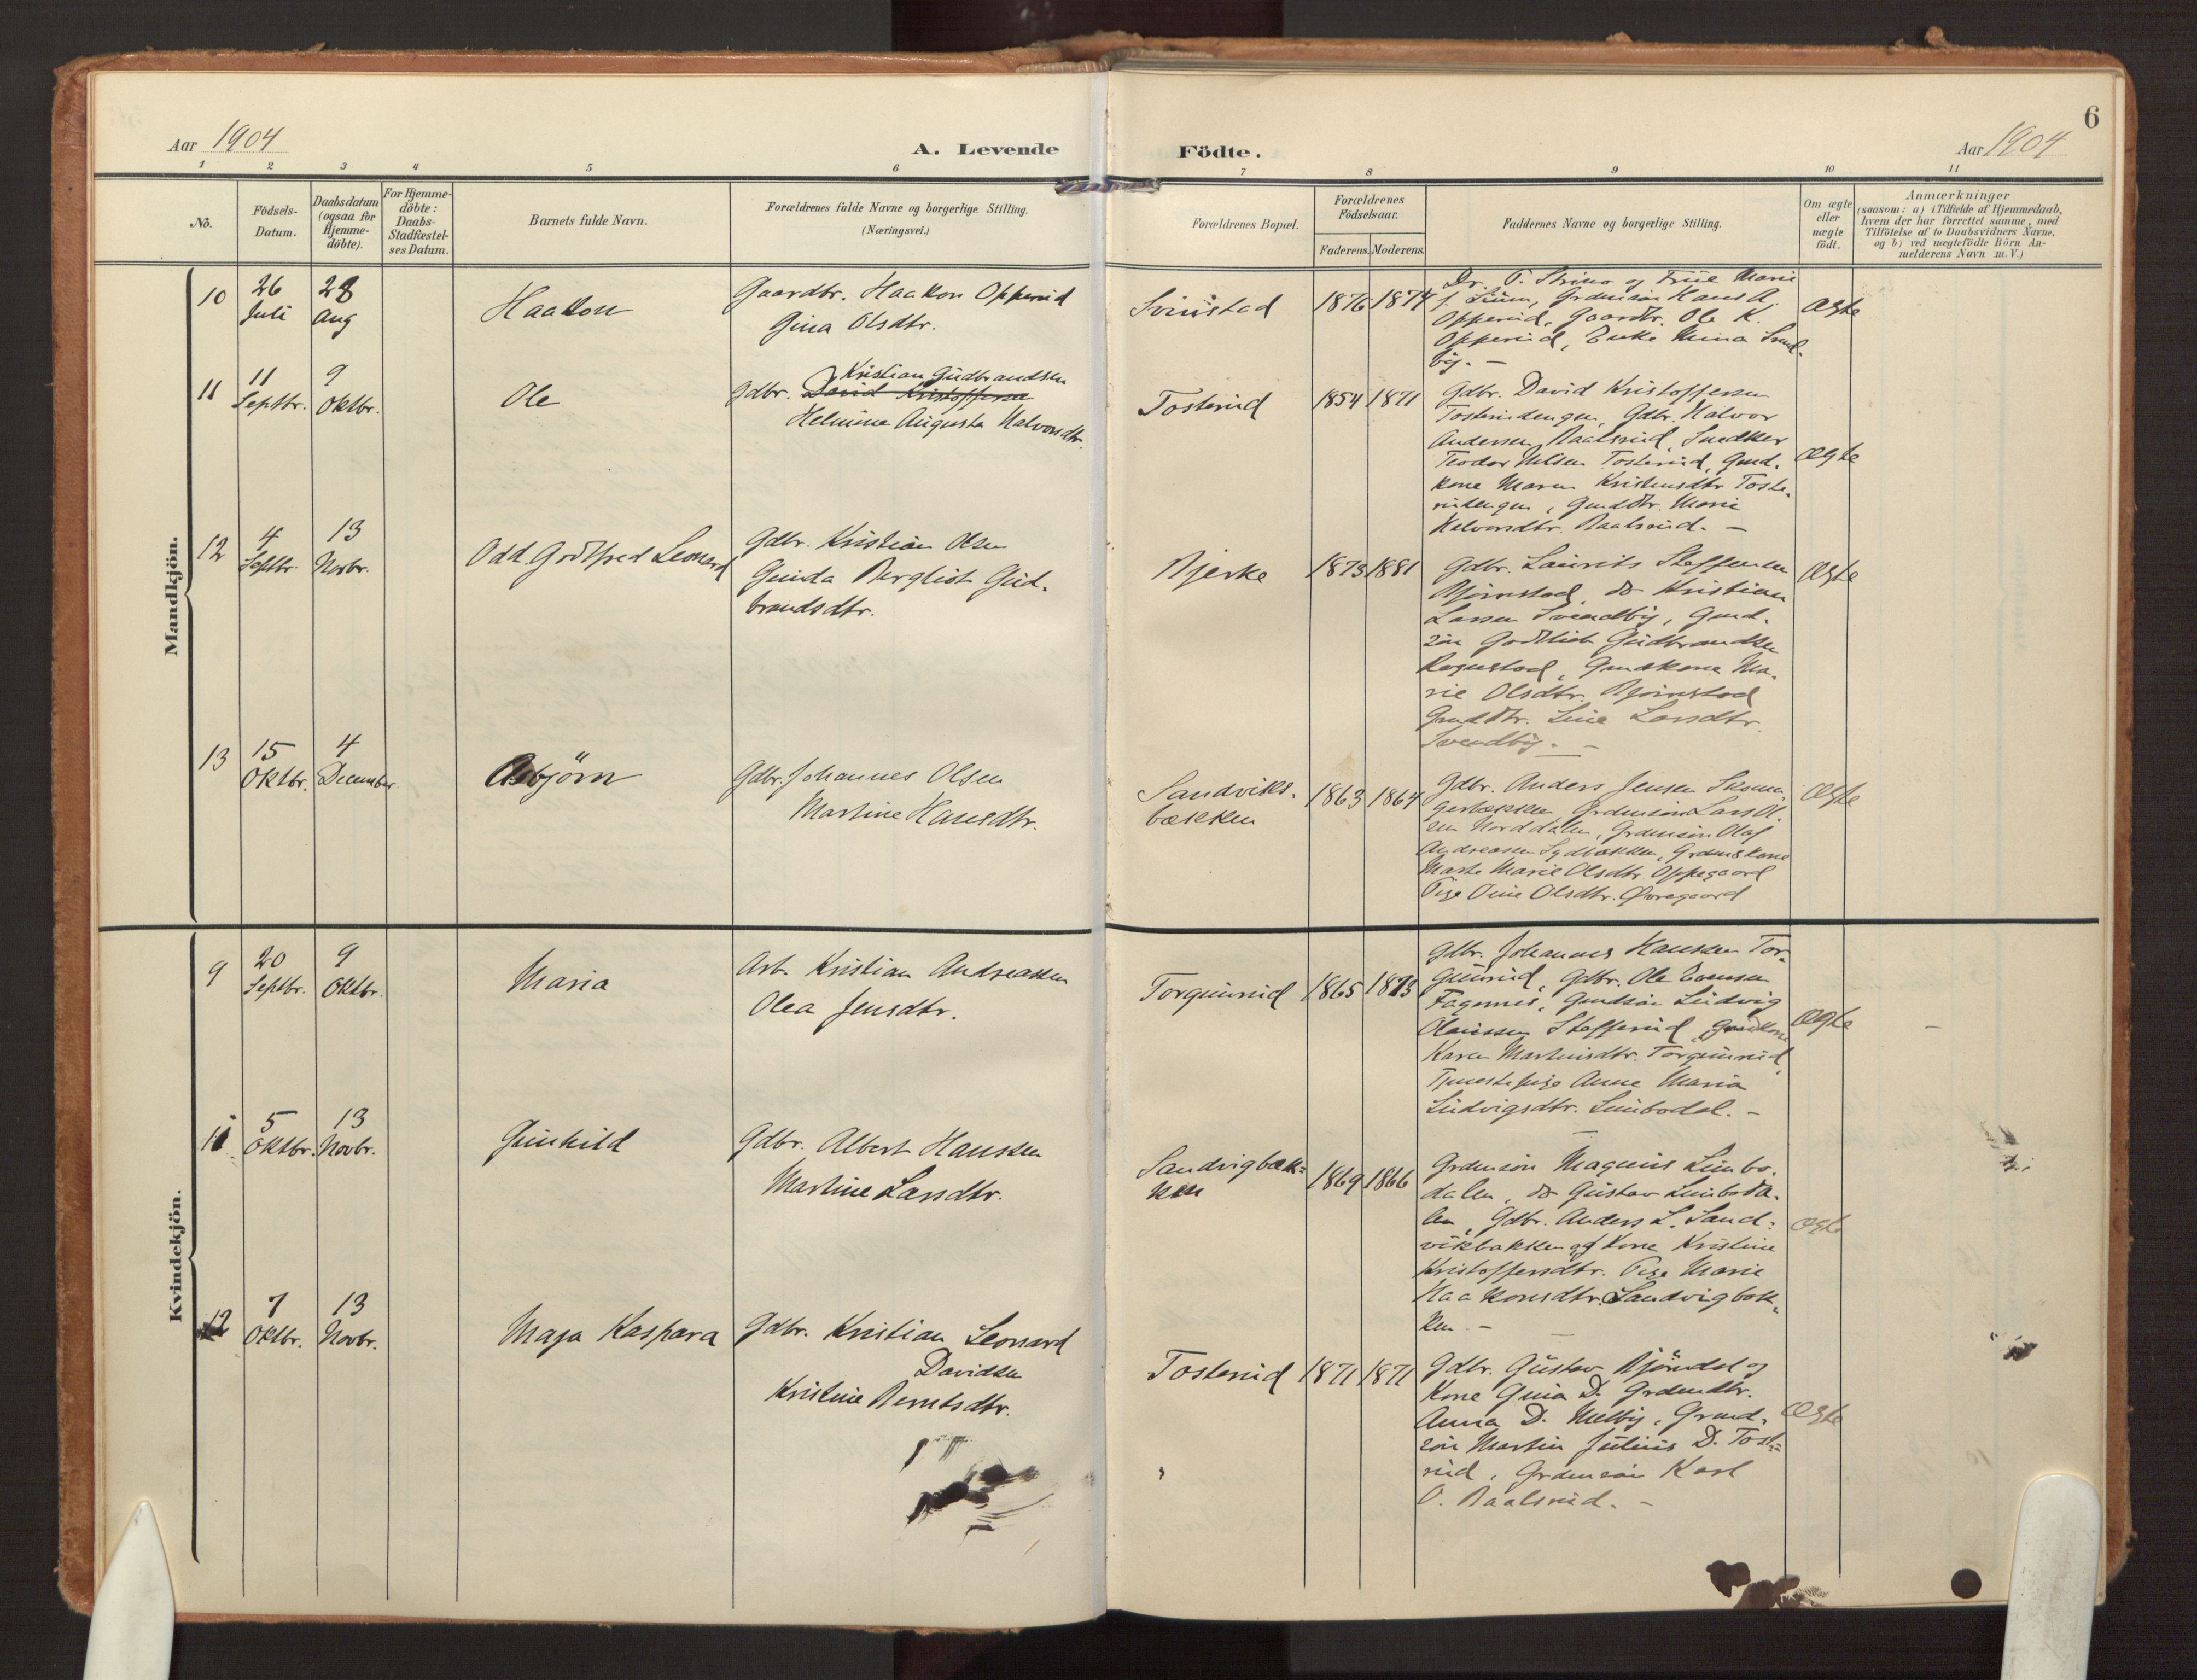 6
Aar 1904
A. Levende
Födte.
Aar 1904
1 2 3 4 5 6 7 8 9 10 11
No.
Födsels-
Datum.
Daabsdatum
(ogsaa for
Hjemme-
döbte).
For Hjemme-
döbte:
Daabs-
Stadfæstel-
ses Datum.
Barnets fulde Navn.
Forældrenes fulde Navne og borgerlige Stilling.
(Næringsvei.)
Forældrenes Bopæl.
Forældrenes
Födselsaar.
Faderens. Moderens.
Faddernes Navne og borgerlige Stilling.
Om ægte
eller
uægte
födt.
Anmærkninger
(saasom: a) i Tilfælde af Hjemmedaab,
hvem der har forrettet samme, med
Tilföielse af to Daabsvidners Navne,
og b) ved uægtefödte Börn An-
melderens Navn m. V.)
Mandkjön.
10
26
Juli
28
Aug
Haakon
Gaardbr. Haakon Opperud
Gina Olsdtr.
Svinstad
1876 1874
og Frue Marie
Hans A.
Opperud, Gaardbr. Ole K.
Opperud, Enke Mina Sund-
by. -
Ægte
11
11
Septbr.
9
Oktbr.
Ole
Kristian Gudbrandsen
Gdbr. David Kristoffersen
Helmine Augusta Halvorsdtr.
Tosterud
1854 1871
Gdbr. David Kristoffersen
Tosterudengen, Gdbr. Halvor
Andersen Baalsrud, Snedker
Teodor Nilsen Tosterud, Gmd.
kone Maren Kristensdtr. Toste-
rudengen, Gmddtr. Marie
Halvorsdtr. Baalsrud. -
Ægte
12
4
Septbr.
13
Novbr.
Odd Godtfred Leonard
Gdbr. Kristian Olsen
Gunda Bergliot Gud-
brandsdtr.
Bjerke
1873 1881
Gdbr. Laurits Steffensen
Bjørnstad, do Kristian
Larsen Svendby, Gmd.
søn Gudbrandsen
Rognstad, Gmdskone Ma-
rie Olsdtr. Bjørnstad
Gmddtr. Line Larsdtr.
Svendby. -
Ægte
13
15
Oktbr.
4
December
Asbjörn
Gdbr. Johannes Olsen
Martine Hansdtr.
Sandviks-
bækken
1863 1864
Gdbr. Anders Jensen
Lars
Norddalen, Grdmsøn Olaf
Andreassen Sydbakken, Grdmskone
Marte Marie Olsdtr. Oppegaard
Pige Olsdtr. Øvregaard
Ægte
Kvindekjön.
9
20
Septbr.
9
Oktbr.
Maria
Arb. Kristian Andreassen
Olea Jensdtr.
Torgunrud
1865 1873
Gdbr. Johannes Hanssen Tor-
gunrud, Gdbr. Ole Evensen
Fagernes, Gmdsøn Ludvig
Olaussen Stefferud, Gmdkone
Karen Martinsdtr. Torgunrud,
Tjenestepige Anne Maria
Ludvigsdtr. Linbodal. -
Ægte
-
11
5
Oktbr.
13
Novbr.
Gunhild
Gdbr. Albert Hanssen
Martine Larsdtr.
Sandvigbæk-
ken
1869 1866
Grdmsøn Magnus Linbo-
dalen, do Gustav Linboda-
len, Gdbr. Anders L. Sand-
vikbakken og Kone Kristine
Kristoffersdtr. Pige Marie
Haakonsdtr. Sandvigbak-
ken. -
Ægte
12
7
Oktbr.
13
Novbr.
Maja Kaspara
Gdbr. Kristian Leonard
Davidsen
Kristine Berntsdtr.
Tosterud
1871 1871
Gdbr. Gustav Bjørndal og
Kone Gina D. Grdmdtr.
Anna D. Melby, Grmd-
søn Martin Julius D. Toste-
rud, Grdmsøn Karl
O. Baalsrud. -
Ægte